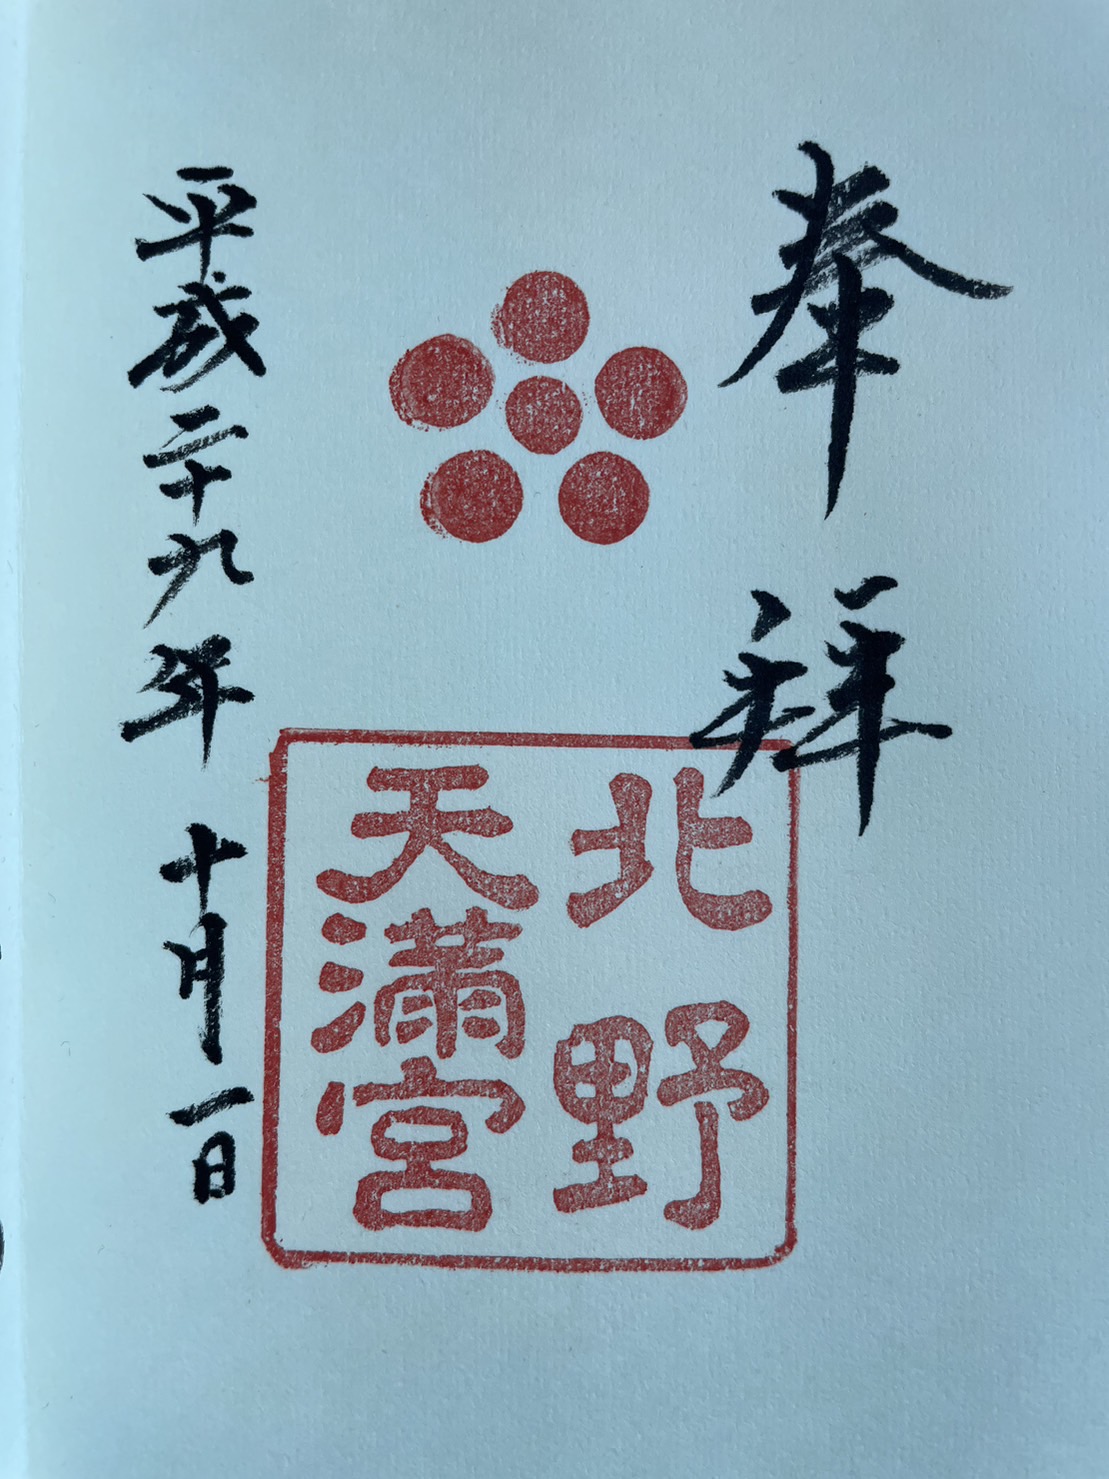 奉拜
北野
天満宮
平成二十九年 十月一日